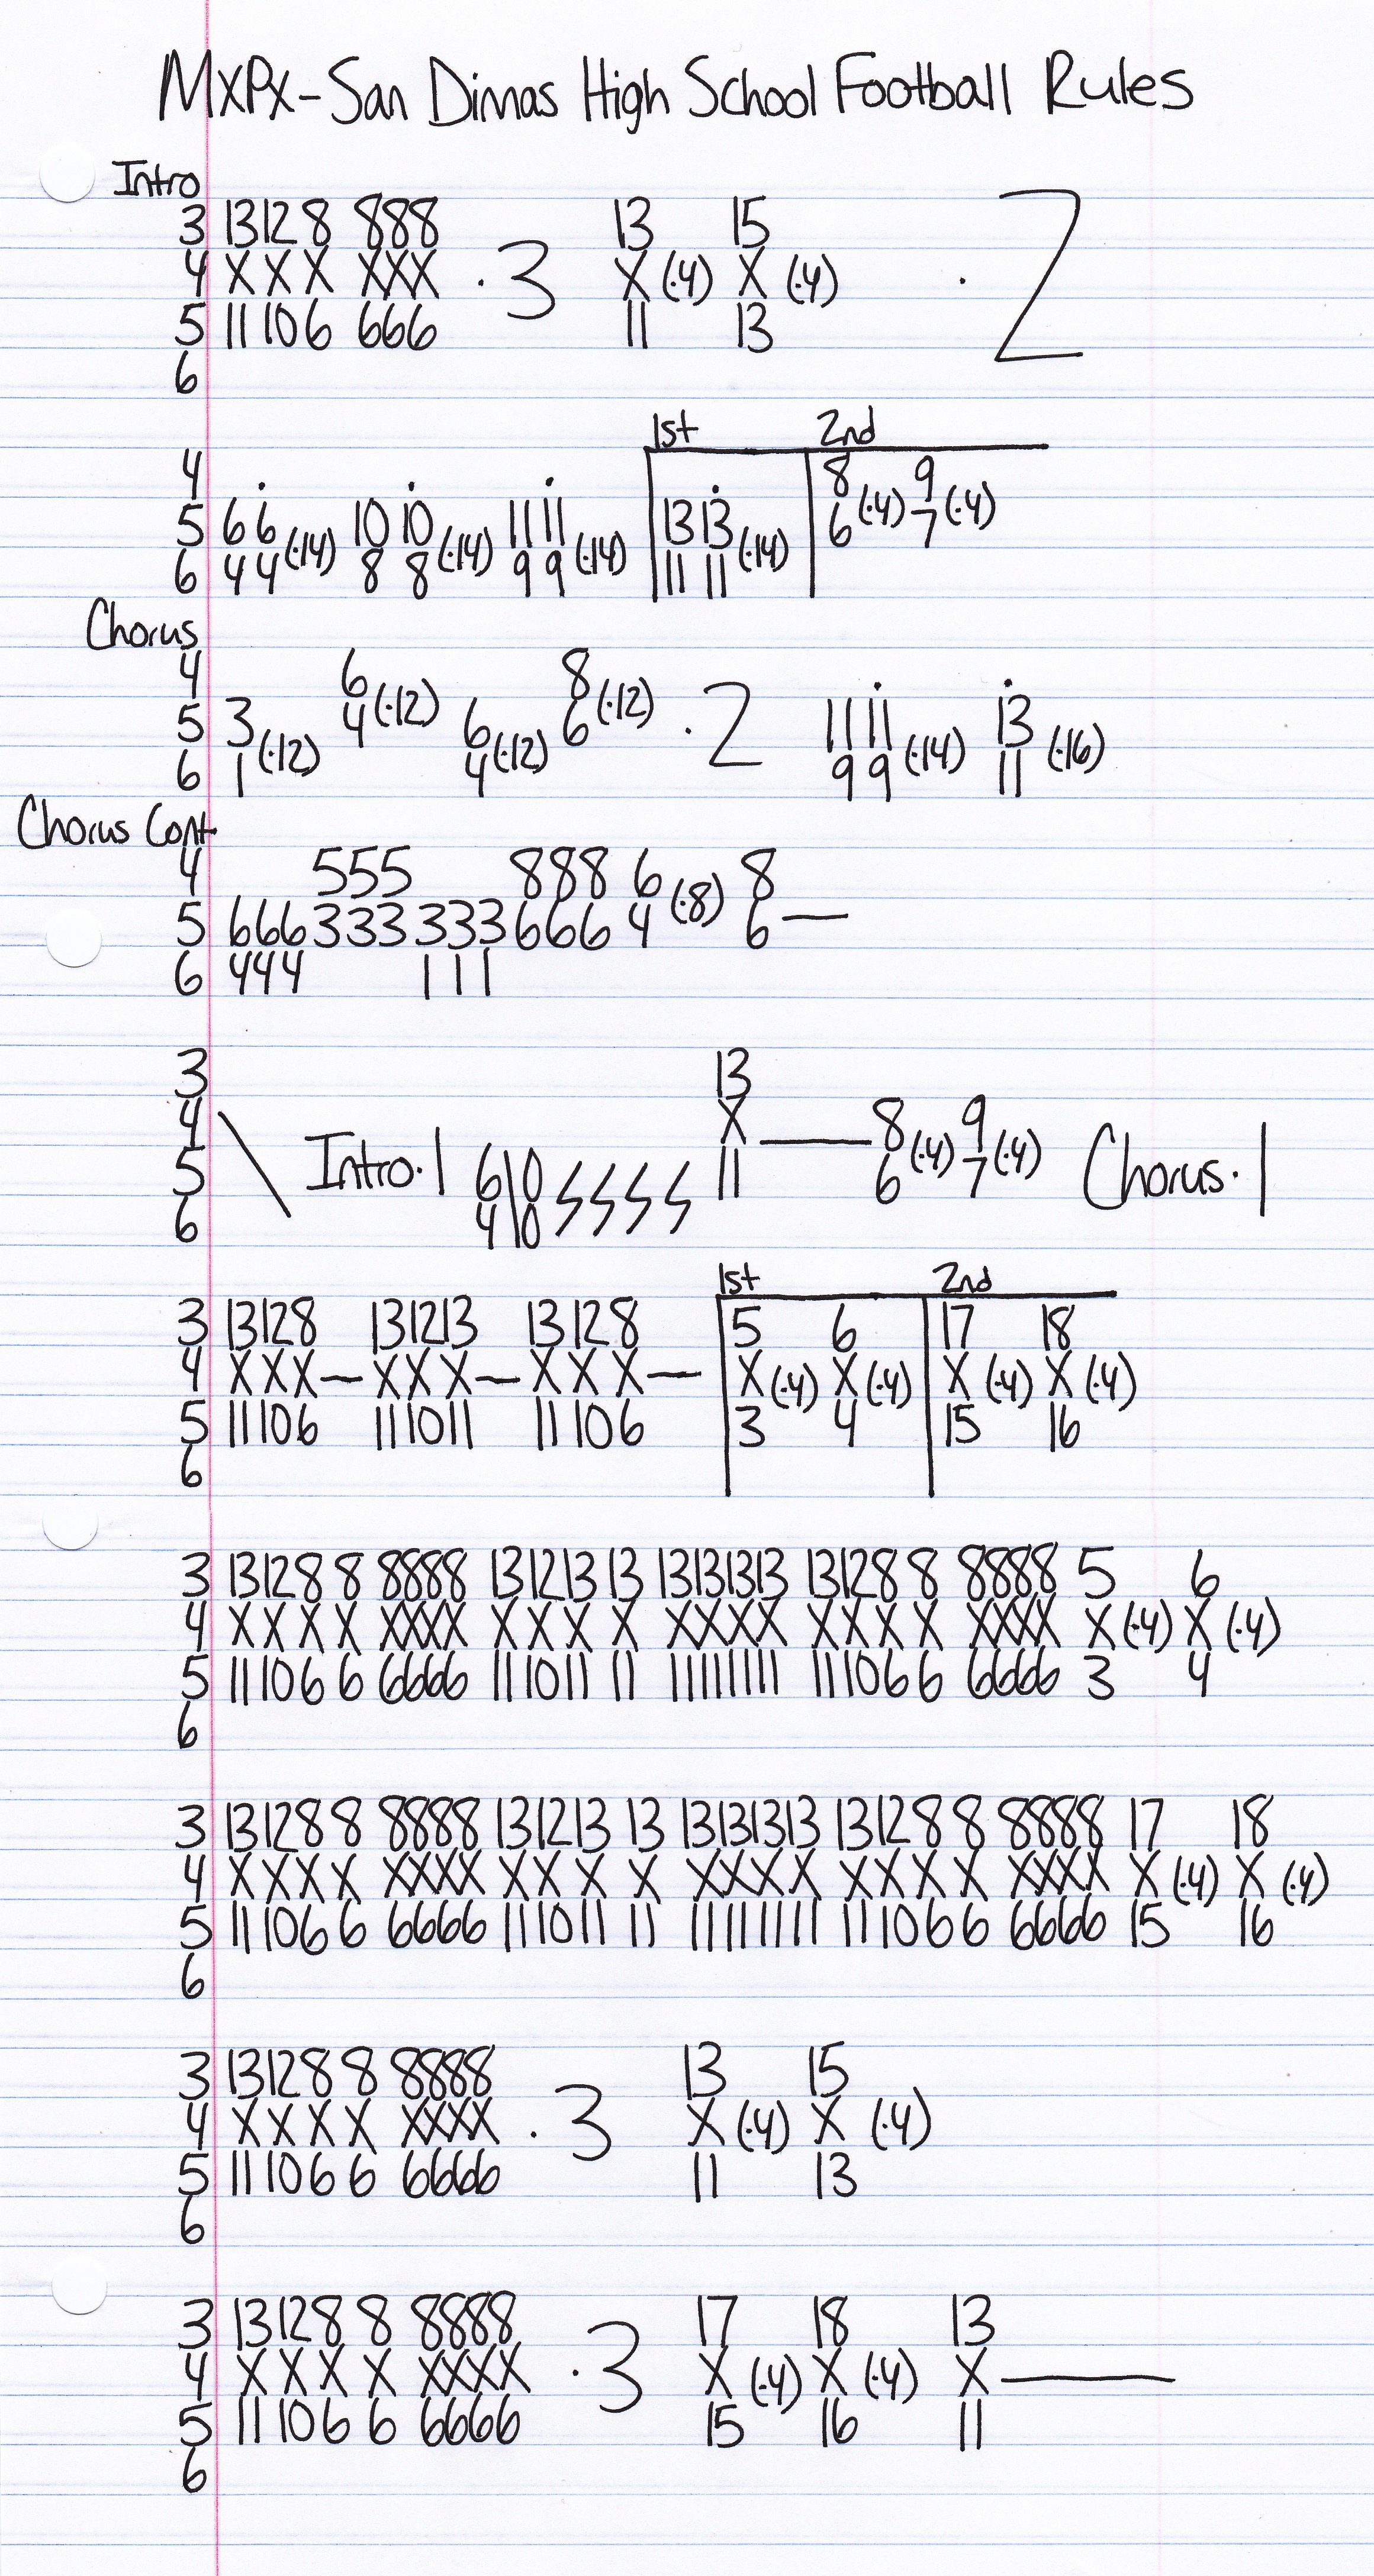 MXPX-San Dimas High School Football Rules
Intro
3 13 12 8 888 13 15
4 X X X XXX ·3 X (·4) X (·4) ·2
5 11 10 6 666 11 13
6
1st 2nd
4 . . . . 8 9
5 6 6 10 10 11 11 13 13 6 (·4) 7 (·4)
6 4 4 (·14) 8 8 (·14) 9 9 (·14) 11 11 (·14)
Chorus
4 6 8 . .
5 3 4 (·12) 6 6 (·12) ·2 11 11 13
6 1 (·12) 4 (·12) 9 9 (·14) 11 (·16)
Chorus Cont
4 555 888 6 8
5 666 333 333 666 4 (·8) 6 —
6 444 111
3 13
4 \ X — 8 9
5 Intro·1 6 10 11 6 (·4) 7 (·4) Chorus·1
6 4 10
1st 2nd
3 13 12 8 13 12 13 13 12 8 5 6 17 18
4 X X X — X X X — X X X — X (·4) X (·4) X (·4) X (·4)
5 11 10 6 11 10 11 11 10 6 3 4 15 16
6
3 13 12 8 8 8888 13 12 13 13 13 13 13 13 13 12 8 8 8888 5 6
4 X X X X XXXX X X X X XXXX X X X X XXXX X (·4) X (·4)
5 11 10 6 6 6666 11 10 11 11 11 11 11 11 11 10 6 6 6666 3 4
6
3 13 12 8 8 8888 13 12 13 13 13 13 13 13 13 12 8 8 8888 17 18
4 X X X X XXXX X X X X XXXX X X X X XXXX X (·4) X (·4)
5 11 10 6 6 6666 11 10 11 11 11 11 11 11 11 10 6 6 6666 15 16
6
3 13 12 8 8 8888 13 15
4 X X X X XXXX ·3 X (·4) X (·4)
5 11 10 6 6 6666 11 13
6
3 13 12 8 8 8888 17 18 13
4 X X X X XXXX ·3 X (·4) X (·4) X —
5 11 10 6 6 6666 15 16 11
6